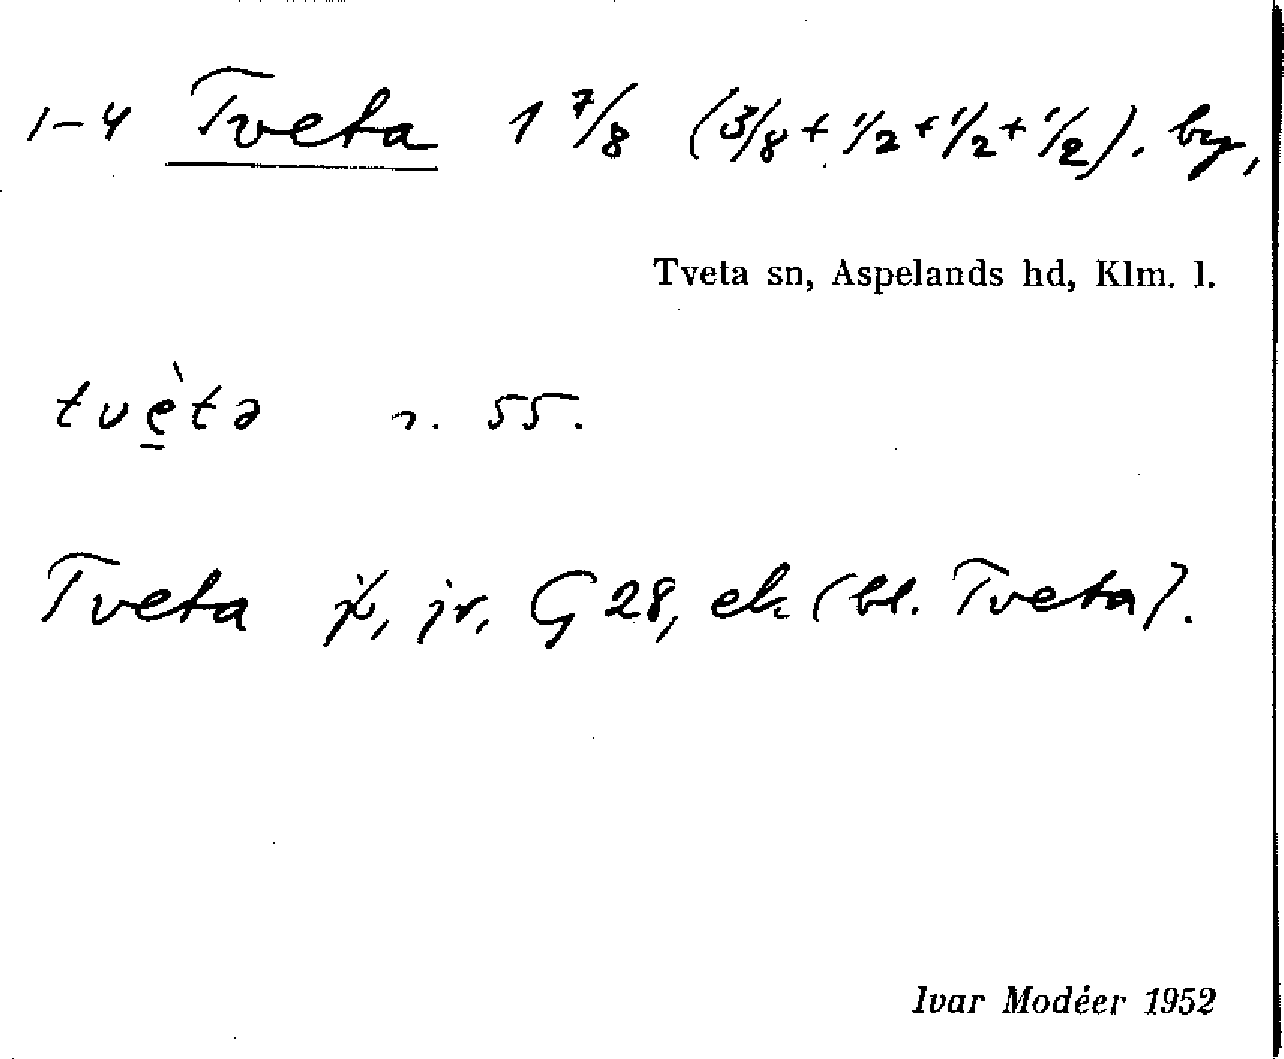 1-4 Tveta 1 7/8 (3/8 + 1/2 + 1/2 + 1/2). by,
Tveta sn, Aspelands hd, Klm. l.
tvètə 55.
Tveta jr, G 28, ek (bl. Tveta).
Ivar Modéer 1952